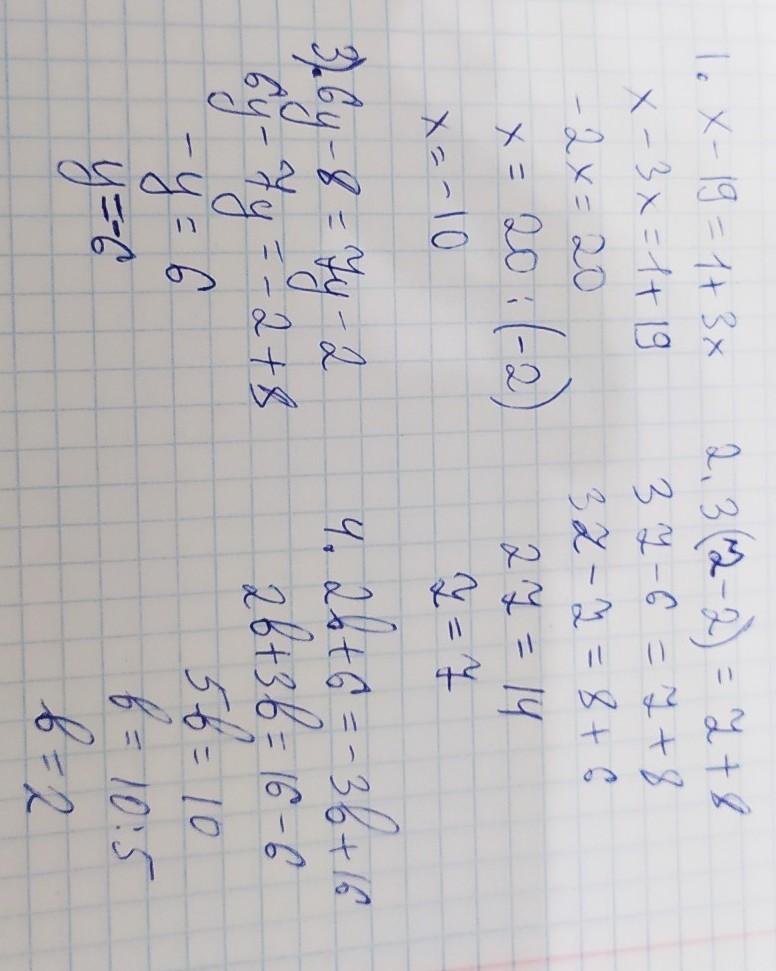 1. x - 19 = 1 + 3x
x - 3x = 1 + 19
-2x = 20
x = 20 : (-2)
x = -10
2. 3(z - 2) = z + 8
3z - 6 = z + 8
3z - z = 8 + 6
2z = 14
z = 7
3). 6y - 8 = 7y - 2
6y - 7y = -2 + 8
-y = 6
y = -6
4. 2b + 6 = -3b + 16
2b + 3b = 16 - 6
5b = 10
b = 10 : 5
b = 2